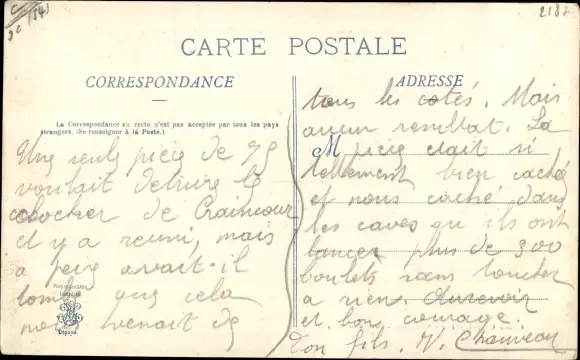 2182
CARTE POSTALE
CORRESPONDANCE
La Correspondance au recto n'est pas acceptée par tous les pays
étrangers. (Se renseigner à la Poste.)
Une seule pièce de 75
voulait detruire le
clocher de
il y a reussi, mais
a peine avait-il
tombé que cela
nous venait de
ADRESSE
tous les cotés. Mais
aucun resultat. La
M
pièce etait si
tellement bien caché
et nous caché dans
les caves qu'ils ont
lancer plus de 300
boulets sans toucher
a rien. Aurevoir
et bon courage.
Ton fils. V. Chauveau